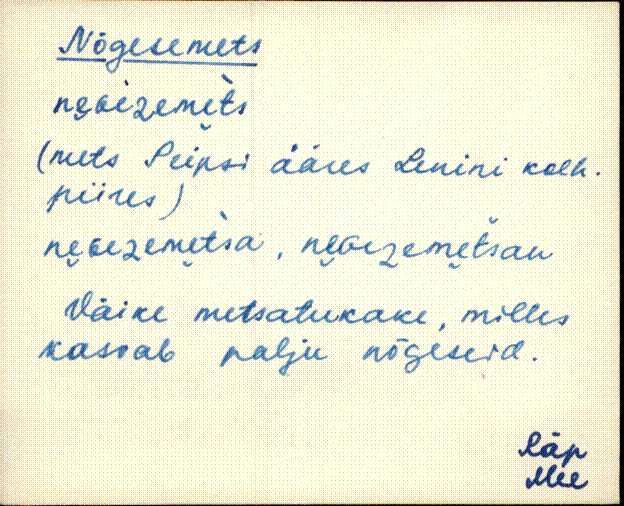 Nõgesemets
ne̮gizeme̮t̀s
(mets Peipsi ääres Lenini kolh.
piires)
ne̮gezeme̮t̀sa, ne̮gezeme̮t̆sau
Väike metsatukake, milles
kasvab palju nõgeseid.
Räp
Mee